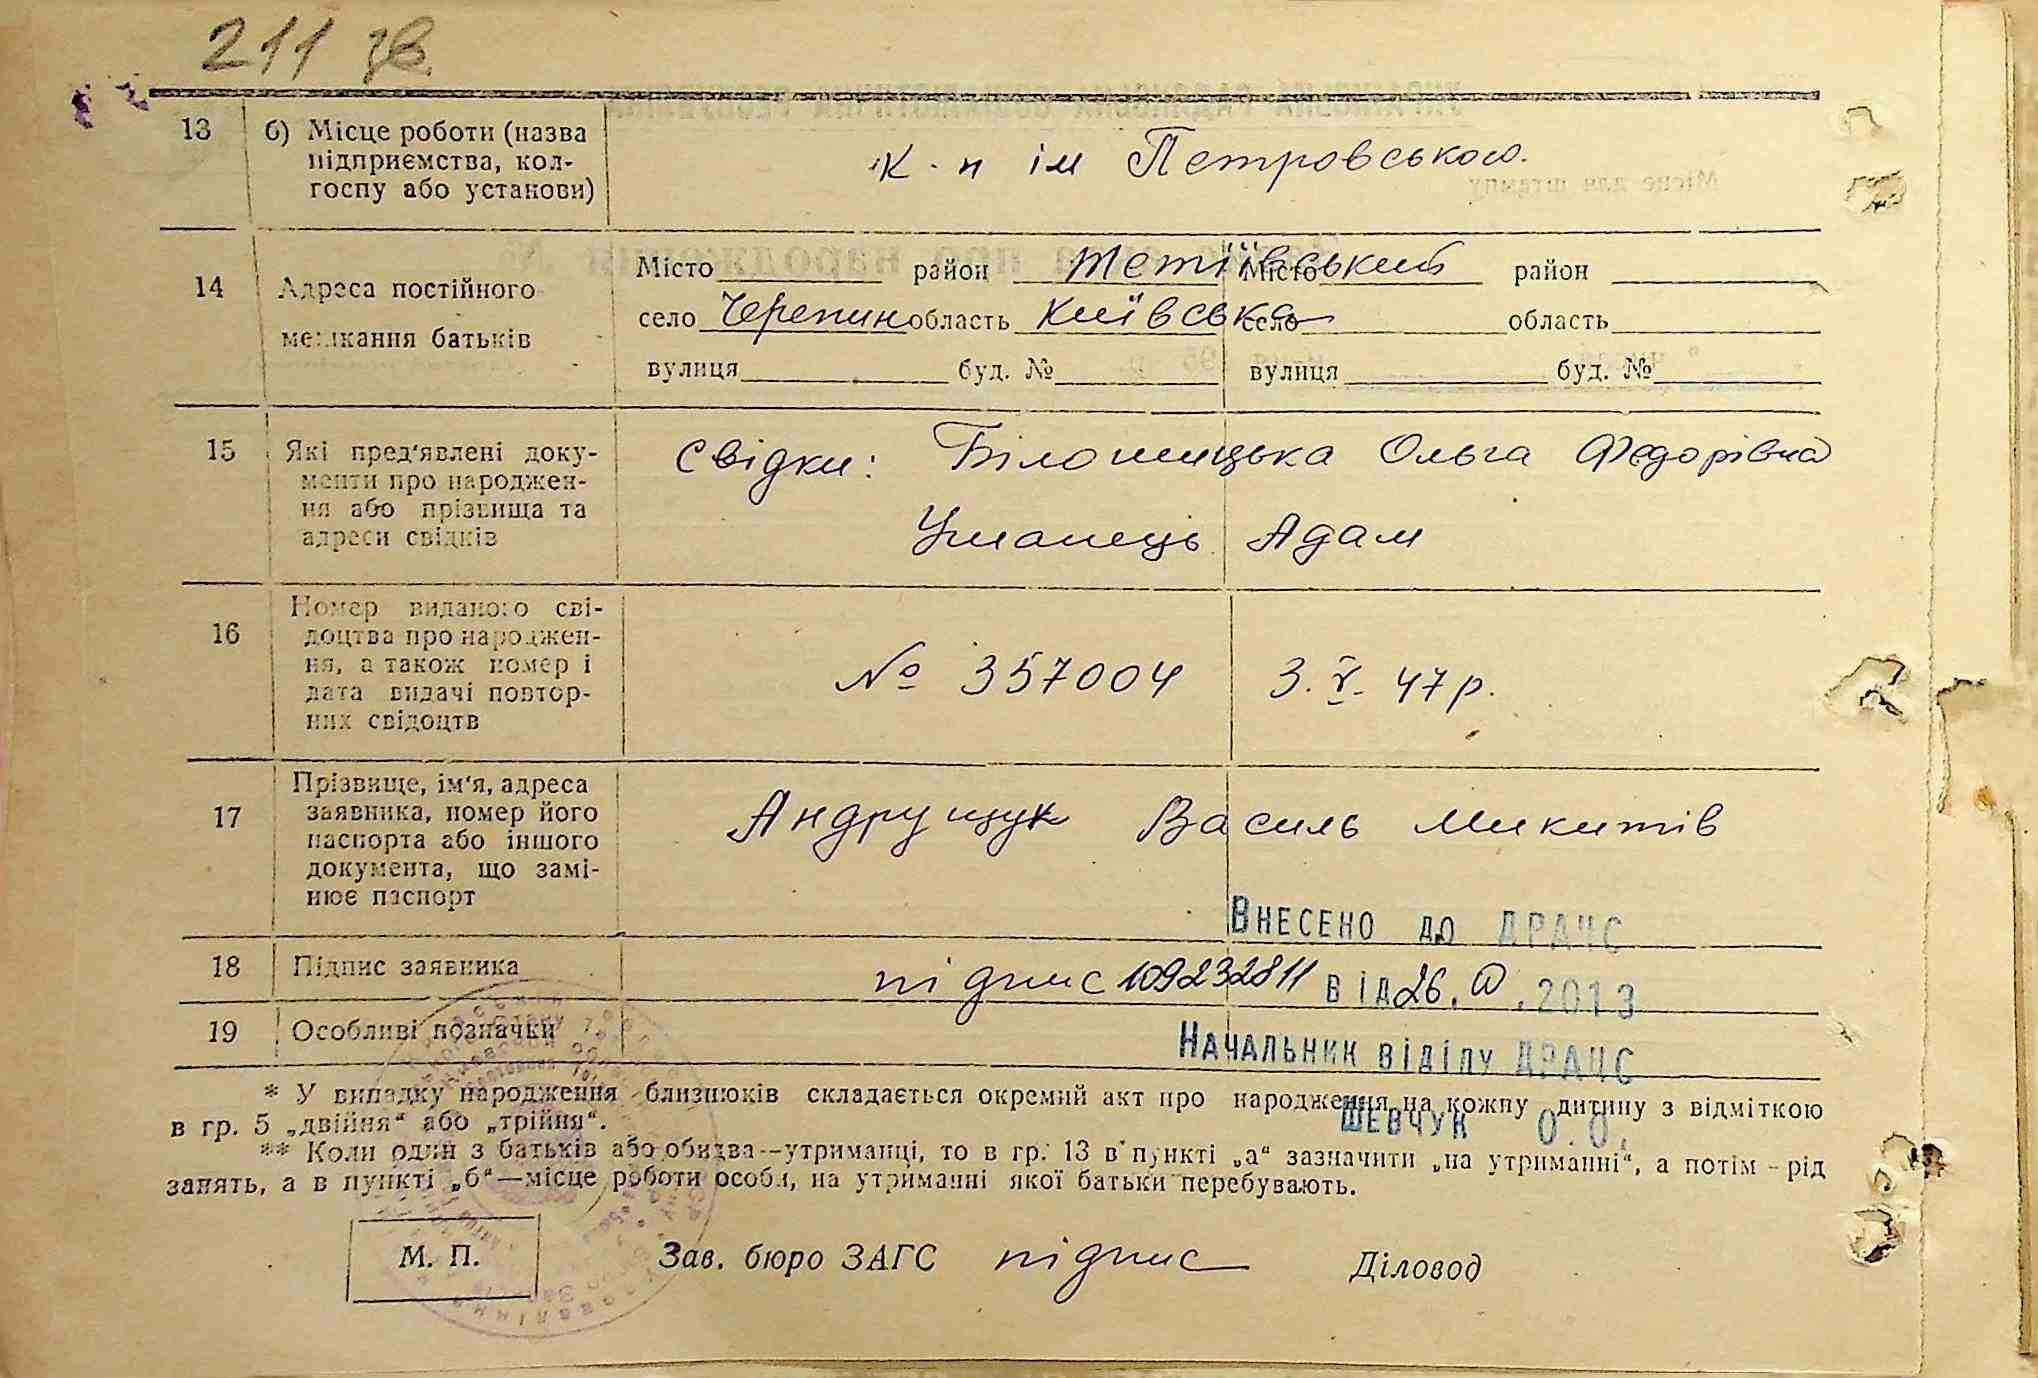 211 зв.
13 б) Місце роботи (назва
підприємства, кол-
госпу або установи)
к-п ім Петровського.
14 Адреса постійного
мешкання батьків
Місто район Тетіївський Місто район
село Черепин область Київська село область
вулиця буд. № вулиця буд. №
15 Які пред'явлені доку-
менти про народжен-
ня або прізвища та
адреси свідків
Свідки: Білошицька Ольга Федорівна
Уманець Адам
16 Номер виданого сві-
доцтва про народжен-
ня, а також номер і
дата видачі повтор-
них свідоцтв
№ 357004 3.V.47р.
17 Прізвище, ім'я, адреса
заявника, номер його
паспорта або іншого
документа, що замі-
нює паспорт
Андрущук Василь Микитів
Внесено до ДРАЦС
18 Підпис заявника підпис 109232811 від 26. .2013
19 Особливі позначки
Начальник відділу ДРАЦС
* У випадку народження близнюків складається окремий акт про народження на кожну дитину з відміткою
в гр. 5 „двійня“ або „трійня“.
Шевчук О.О.
** Коли один з батьків або обидва—утриманці, то в гр. 13 в пункті „а“ зазначити „на утриманні“, а потім—рід
занять, а в пункті „б“—місце роботи особи, на утриманні якої батьки перебувають.
М. П. Зав. бюро ЗАГС підпис Діловод